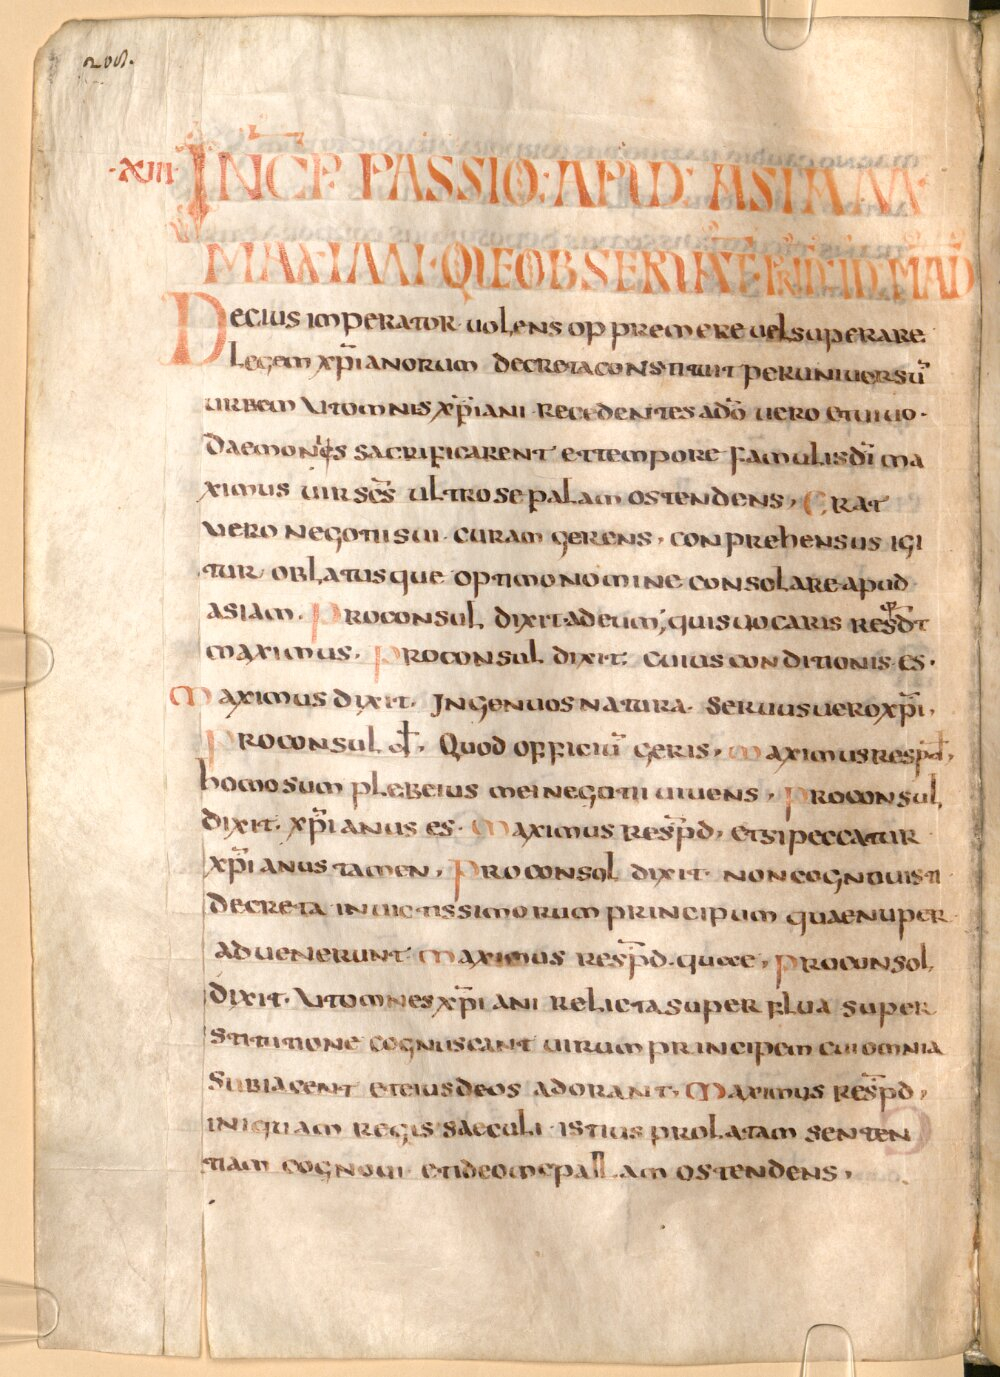 208.
·XIII· INCP PASSIO· APUD· ASIAM·
MAXIMI· QUE OBSERUAT̅· PRID· ID· MAD
Decius imperator uolens oppremere uel superare
legem xp̅ianorum decreta constituit per uniuersu̅
urbem Ut omnis xp̅iani recedentes a do̅ uero et uiuo·
daemoniis sacrificarent et tempore famulis di̅ ma
ximus uir sc̅s ultro se palam ostendens, Erat
uero negotii sui curam gerens, conprehensus igi
tur oblatusque optimo nomine consolare apud
asiam. Proconsul dixit ad eum; quis uocaris resp̅dt
maximus. Proconsul dixit: cuius conditionis es·
Maximus dixit. Ingenuos natura· seruus uero xp̅i,
Proconsul d̅, Quod officiu̅ geris, maximus resp̅d,
homo sum plebeius mei negotii uiuens, Proconsul
dixit. xp̅ianus es· Maximus resp̅d, etsi peccatur
xp̅ianus tamen, Proconsol dixit· non cognouisti
decreta inuictissimorum principum quae nuper
aduenerunt· Maximus resp̅d. quae, Proconsol
dixit. Ut omnes xp̅iani relicta superflua super
stitutione cognuscant uirum principem cui omnia
subiacent et eius deos adorant, Maximus resp̅d,
iniquam regis saeculi istius prolatam senten
tiam cognoui et ideo me pallam ostendens,